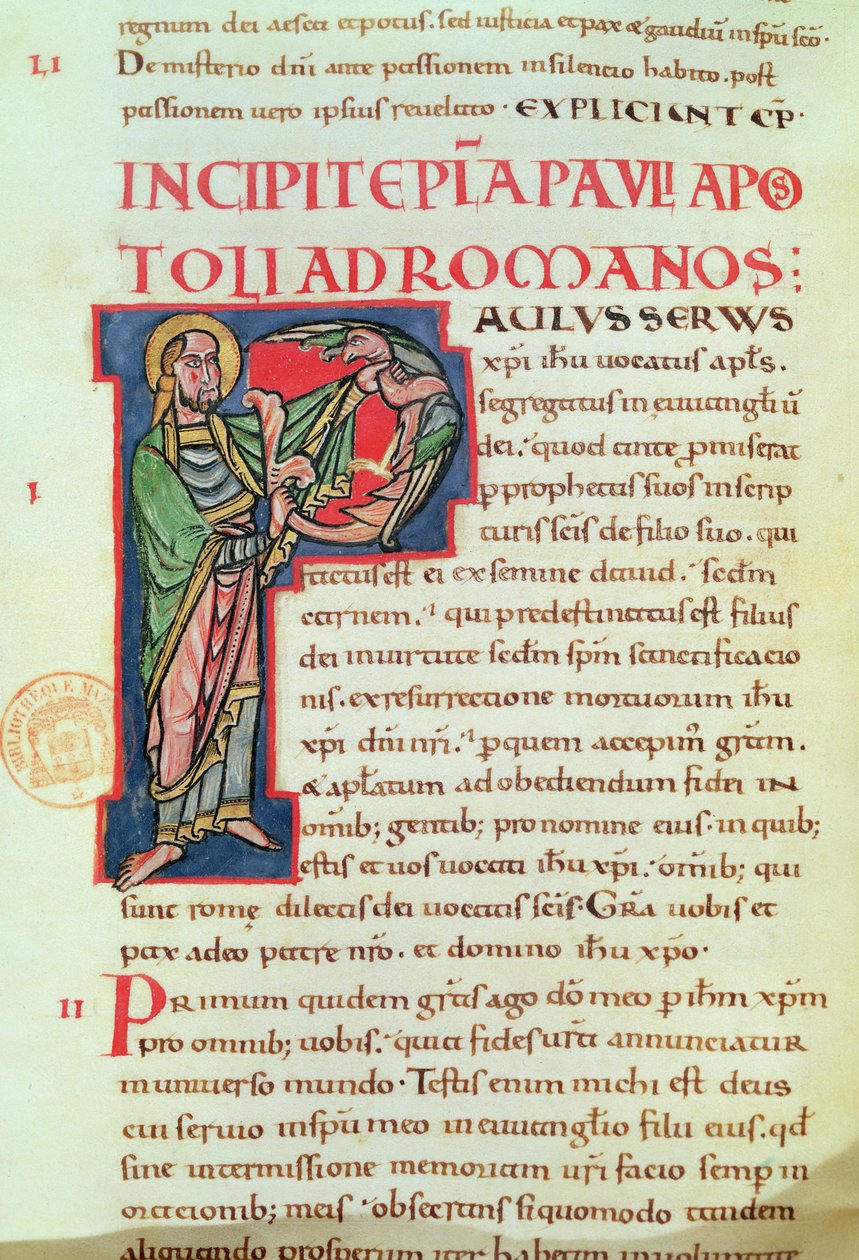 regnum dei aesca et potus. sed iusticia et pax & gaudiū in sp̄u sc̄o.
LI De misterio dn̄i ante passionem in silencio habito. post
passionem uero ipsius reuelato. EXPLICIUNT CP̄.
INCIPIT EPL̄A PAVLI APOS
TOLI AD ROMANOS:
PAULVS SERWS
xp̄i ih̄u uocatus apl̄s.
segregatus in euuangl̄iū
dei. quod ante p̱miserat
I p̱ prophetas suos in scrip
turis sc̄is de filio suo. qui
factus est ei ex semine dauid. scd̄m
carnem. qui predestinatus est filius
dei in uirtute scd̄m sp̄m sanctificacio
nis. ex resurrectione mortuorum ih̄u
xp̄i dn̄i nr̄i. p̱ quem accepim̄ gr̄am.
& apl̄atum ad obediendum fidei IN
om̄ib; gentib; pro nomine eius. in quib;
estis et uos uocati ih̄u xp̄i. om̄ib; qui
sunt romę dilectis dei uocatis sc̄is. Gr̄a uobis et
pax a deo patre nr̄o. et domino ih̄u xp̄o.
II PRimum quidem gr̄as ago dō meo p̱ ih̄m xp̄m
pro omnib; uobis. quia fides ur̄a annunciatur
in uniuerso mundo. Testis enim michi est deus
cui seruio in sp̄u meo in euuangl̄io filii eius. qd̄
sine intermissione memoriam ur̄i facio semp̱ in
oracionib; meis obsecrans si quomodo tandem
aliquando prosperum iter habeam in uoluntate
BIBLIOTHEQUE